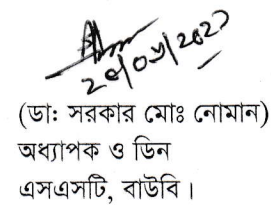 ২৮/০৬/২০২৩
(ডা: সরকার মোঃ নোমান)
অধ্যাপক ও ডিন
এসএসটি, বাউবি।